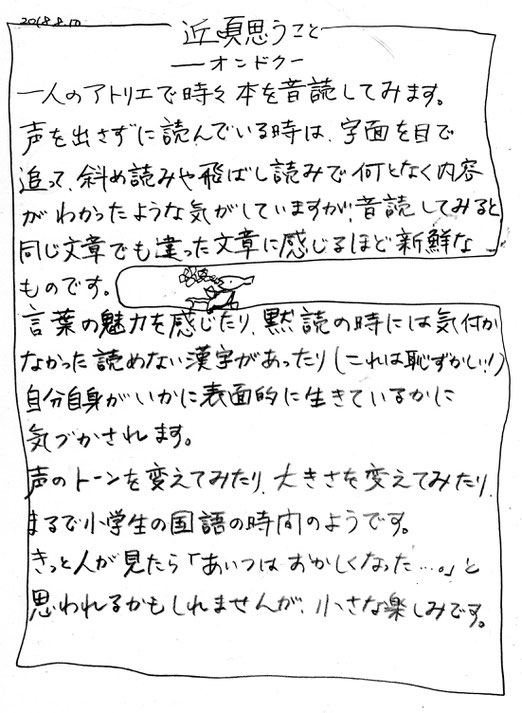 2018.8.10
近頃思うこと
—オンドクー
一人のアトリエで時々本を音読してみます。
声を出さずに読んでいる時は、字面を目で
追って、斜め読みや飛ばし読みで何となく内容
がわかったような気がしていますが、音読してみると
同じ文章でも違った文章に感じるほど新鮮な
ものです。
言葉の魅力を感じたり、黙読の時には気付か
なかった読めない漢字があったり(これは恥ずかしい!!)
自分自身がいかに表面的に生きているかに
気づかされます。
声のトーンを変えてみたり、大きさを変えてみたり、
まるで小学生の国語の時間のようです。
きっと人が見たら「あいつはおかしくなった…。」と
思われるかもしれませんが、小さな楽しみです。